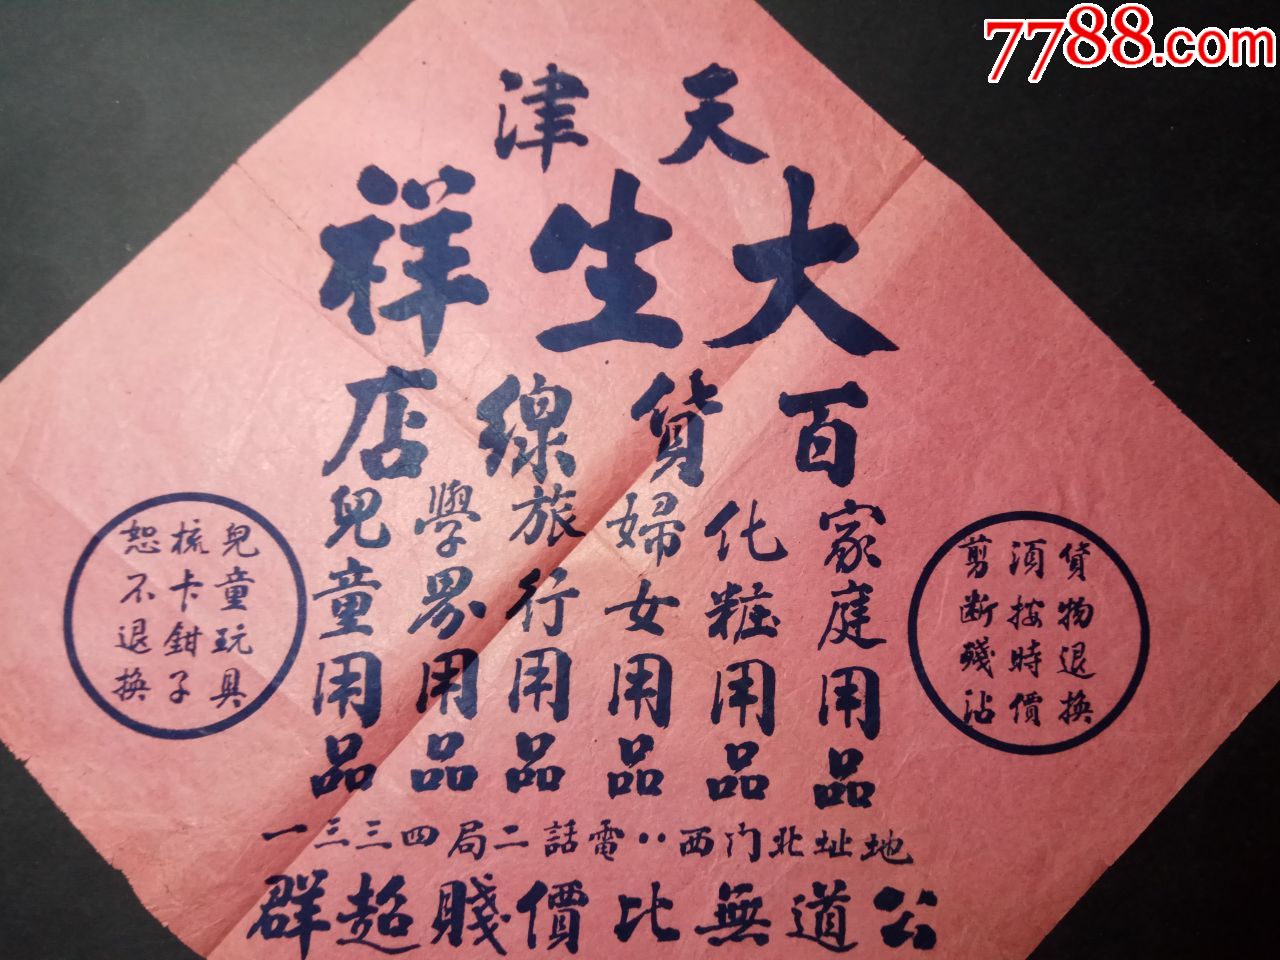 7788.com
天津
大生祥
百貨線店
家庭用品
化粧用品
婦女用品
旅行用品
學界用品
兒童用品
貨物退換
須按時價
剪断殘沾
兒童玩具
梳卡鉗子
恕不退換
地址北门西‥電話二局四三三一
公道無比價賤超群